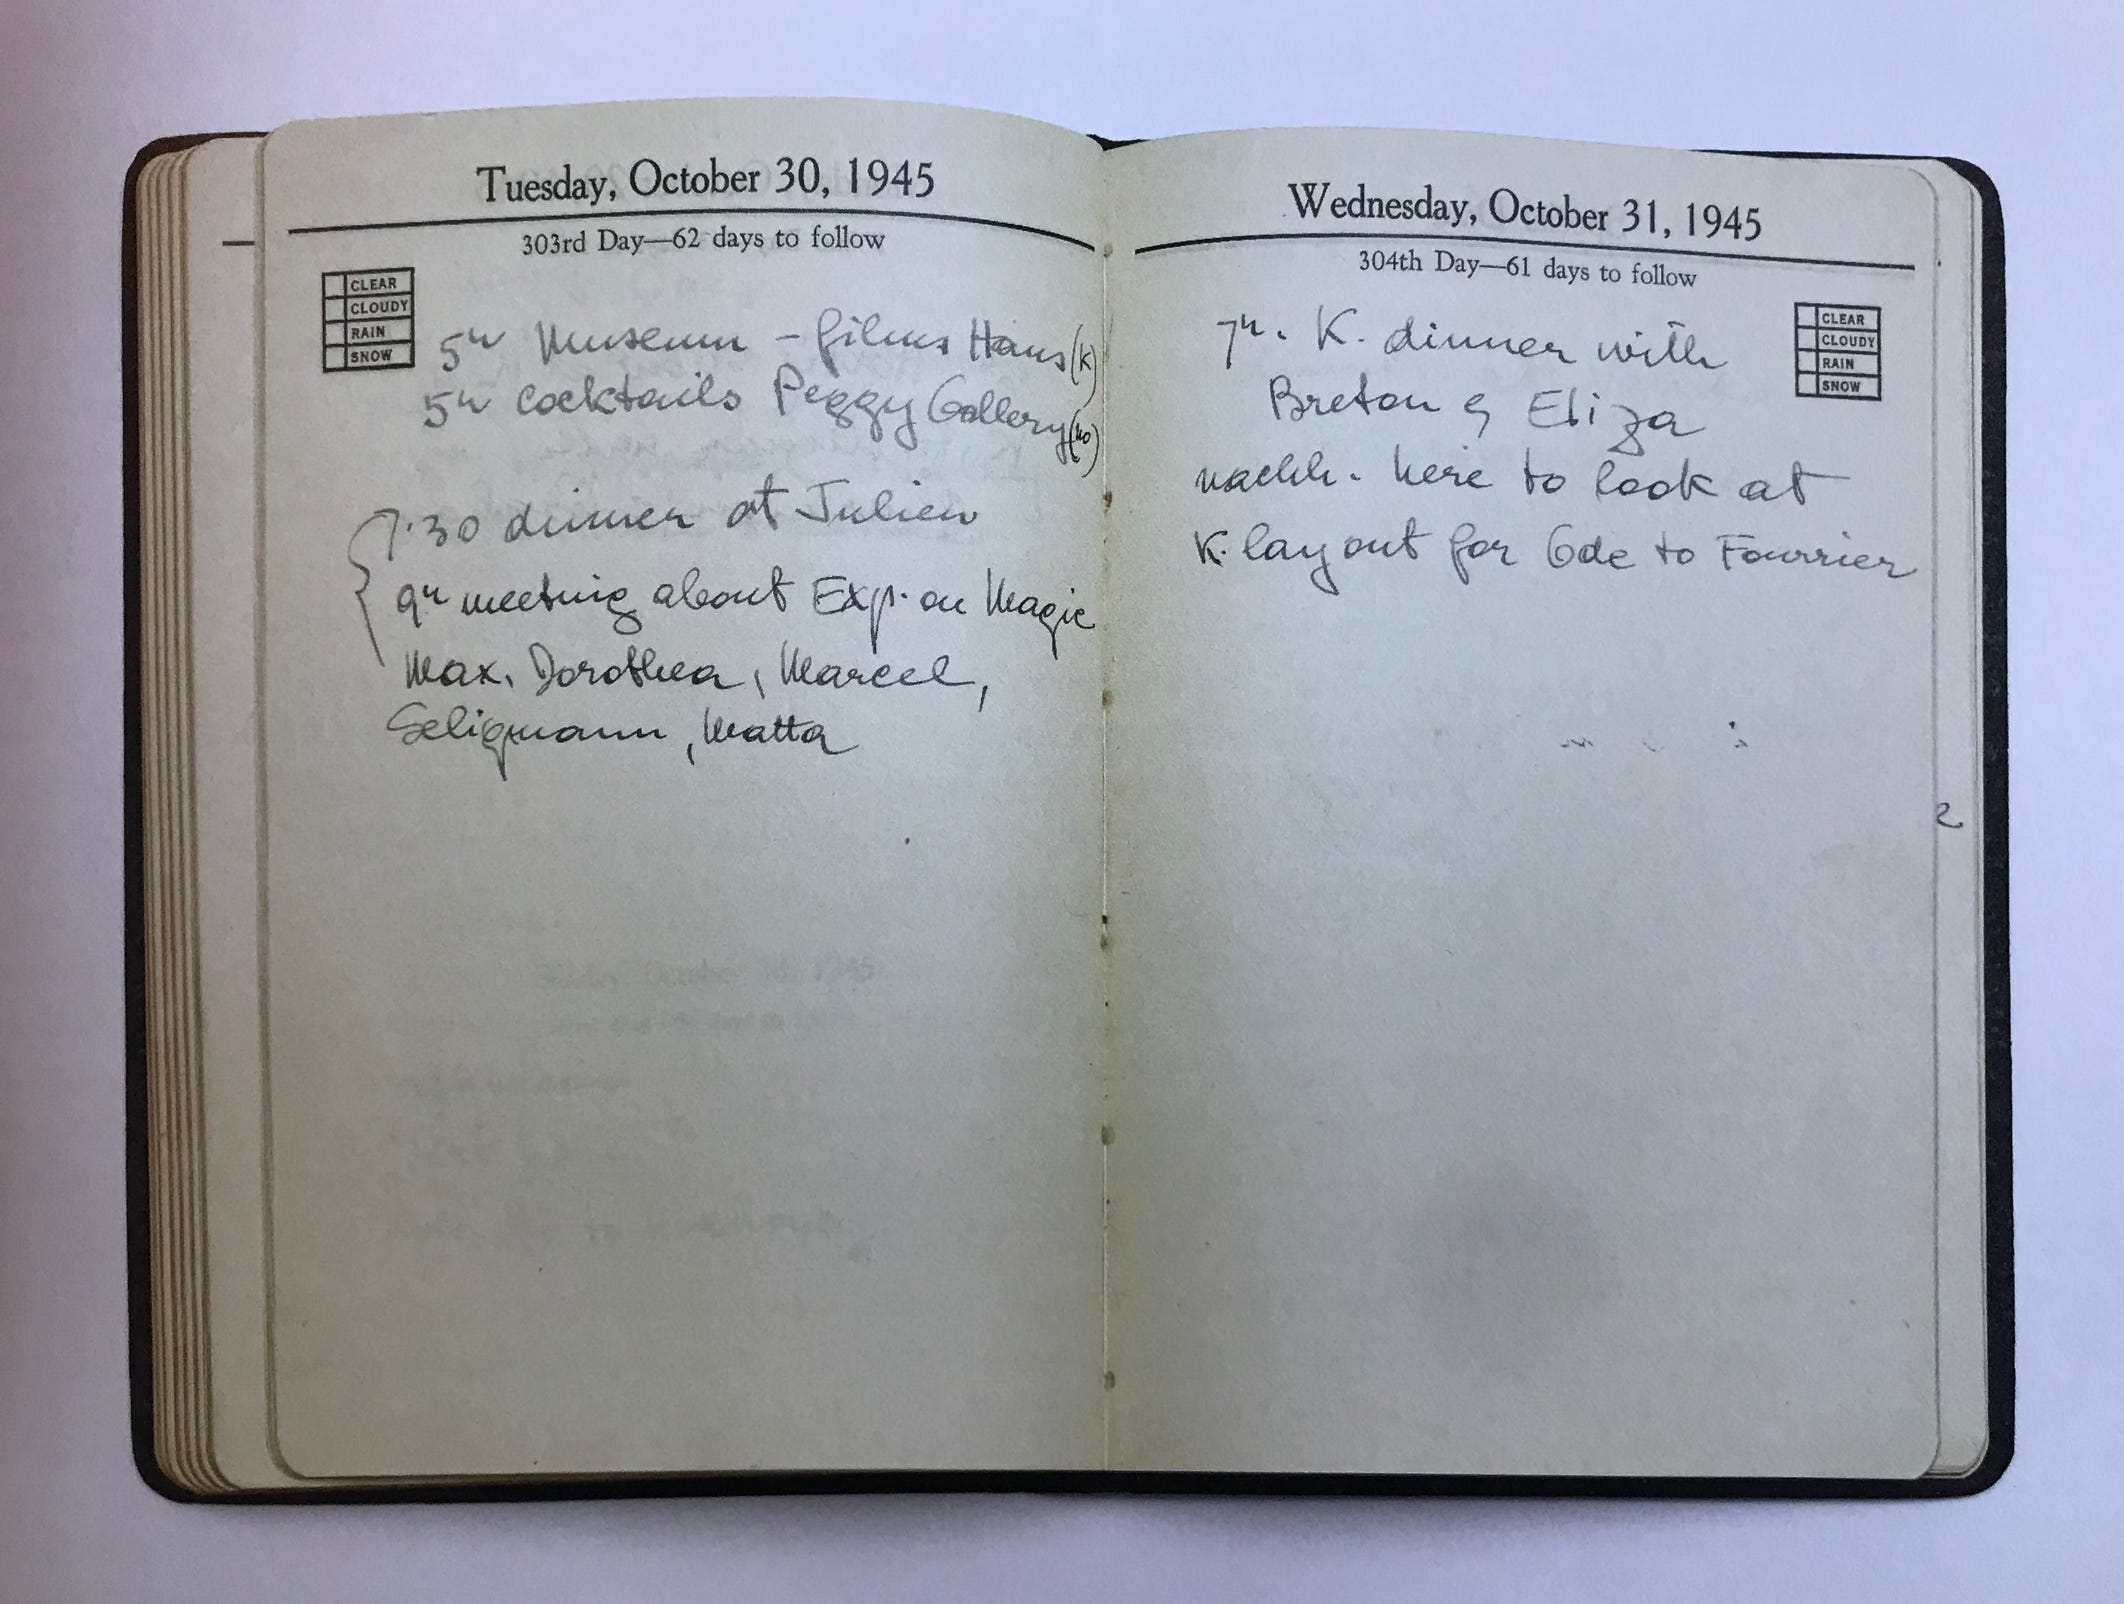 Tuesday, October 30, 1945
303rd Day—62 days to follow
CLEAR
CLOUDY
RAIN
SNOW
5h Museum – films Hans (K)
5h cocktails Peggy Gallery (no)
7.30 dinner at Julien
9h meeting about Exp. on Magic
Max, Dorothea, Marcel,
Seligmann, Matta
Wednesday, October 31, 1945
304th Day—61 days to follow
CLEAR
CLOUDY
RAIN
SNOW
7h. K. dinner with
Breton & Eliza
nachh. here to look at
K. layout for Ode to Fourrier
2